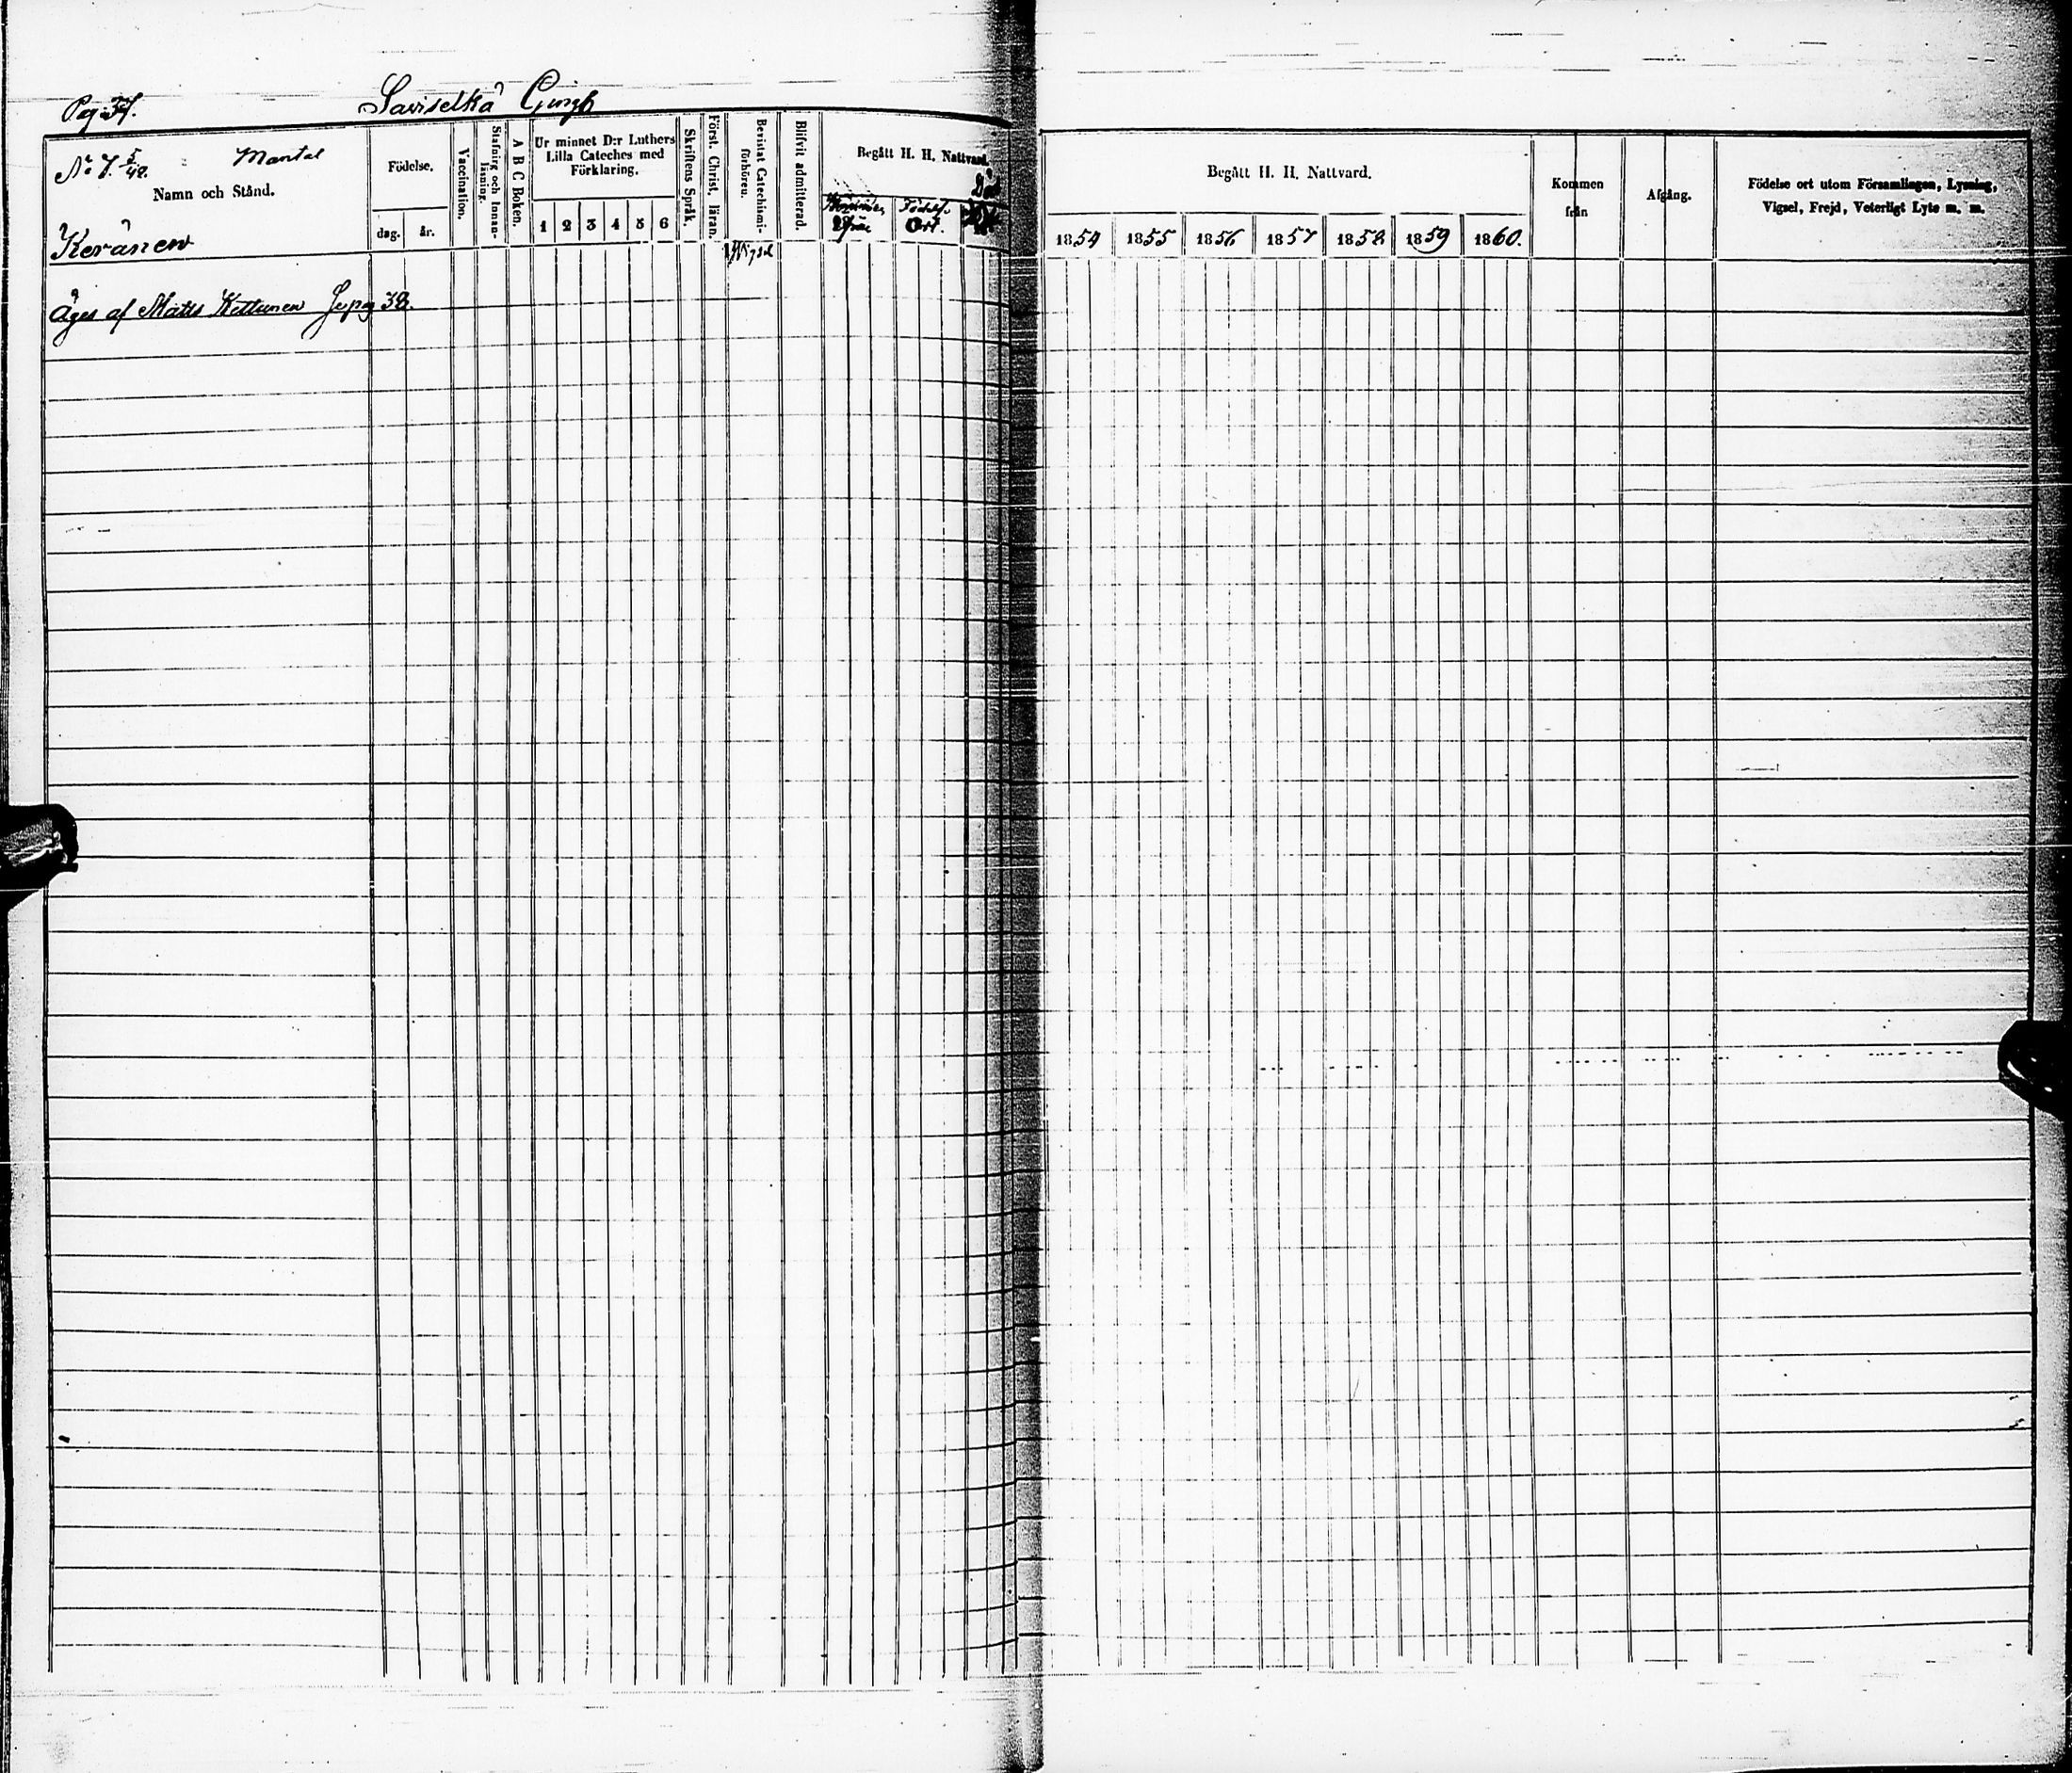 Pag. 37.
Saviselkä
No 7. 5/48. Mantal
Namn och Stånd.
Keränen
Födelse.
dag. år.
Vaccination.
Stafning och Innan-
läsning.
A B C Boken.
Ur minnet D:r Luthers
Lilla Cateches med
Förklaring.
1 2 3 4 5 6
Skriftens Språk.
Först. Christ. läran.
Bevistat Catechismi-
förhören.
Vigsel
Blifvit admitterad.
Begått H. H. Nattvard.
Ort.
Begått H. H. Nattvard.
1854 1855 1856 1857 1858 1859 1860.
Kommen
från
Afgång.
Födelse ort utom Församlingen, Lysning,
Vigsel, Frejd, Veterligt Lyte m. m.
Äges af Matts Kettunen pag 38.